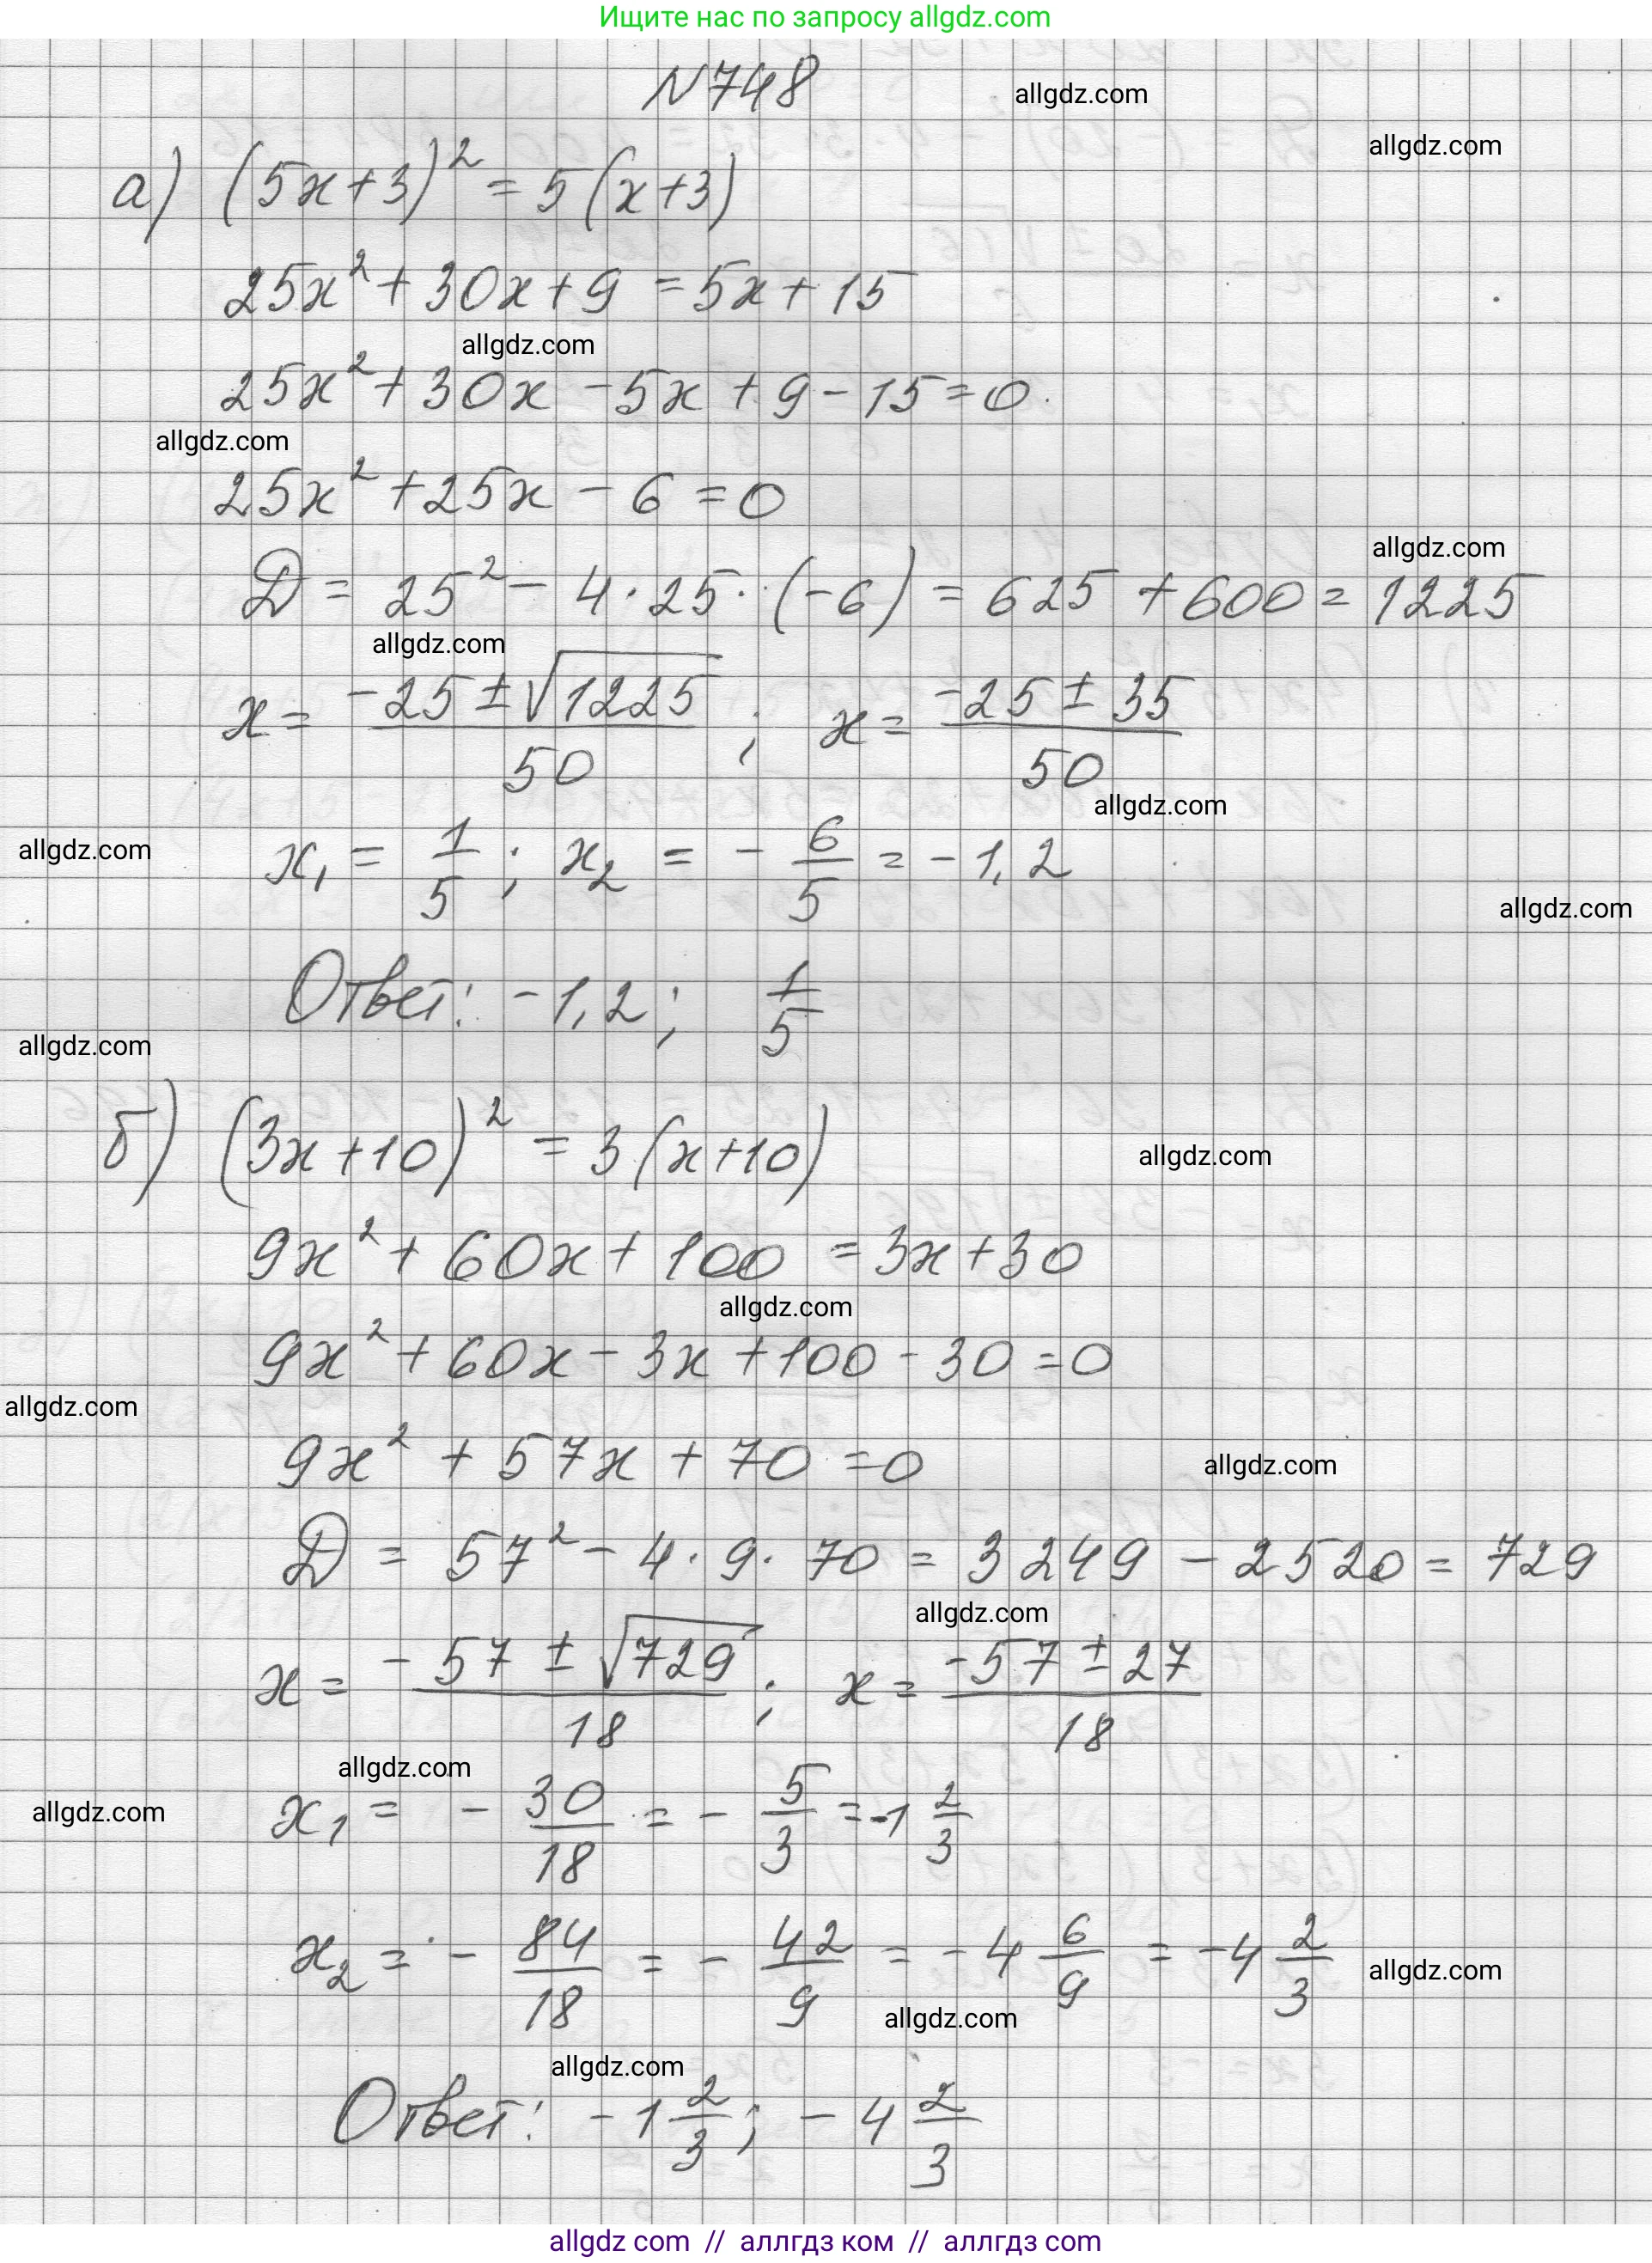 Ищите нас по запросу allgdz.com
N748
allgdz.com
allgdz.com
а) (5x+3)² = 5(x+3)
25x² + 30x + 9 = 5x + 15
allgdz.com
25x² + 30x - 5x + 9 - 15 = 0
allgdz.com
25x² + 25x - 6 = 0
allgdz.com
D = 25² - 4·25·(-6) = 625 + 600 = 1225
allgdz.com
x = (-25 ± √1225)/50 ; x = (-25 ± 35)/50
allgdz.com
allgdz.com
x₁ = 1/5 ; x₂ = - 6/5 = -1,2
allgdz.com
Ответ: -1,2 ; 1/5
allgdz.com
б) (3x+10)² = 3(x+10)
allgdz.com
9x² + 60x + 100 = 3x + 30
allgdz.com
9x² + 60x - 3x + 100 - 30 = 0
allgdz.com
9x² + 57x + 70 = 0
allgdz.com
D = 57² - 4·9·70 = 3249 - 2520 = 729
allgdz.com
x = (-57 ± √729)/18 ; x = (-57 ± 27)/18
allgdz.com
allgdz.com
x₁ = - 30/18 = - 5/3 = -1 2/3
x₂ = - 84/18 = - 42/9 = -4 6/9 = -4 2/3
allgdz.com
allgdz.com
allgdz.com
Ответ: -1 2/3 ; -4 2/3
allgdz com // аллгдз ком // аллгдз com